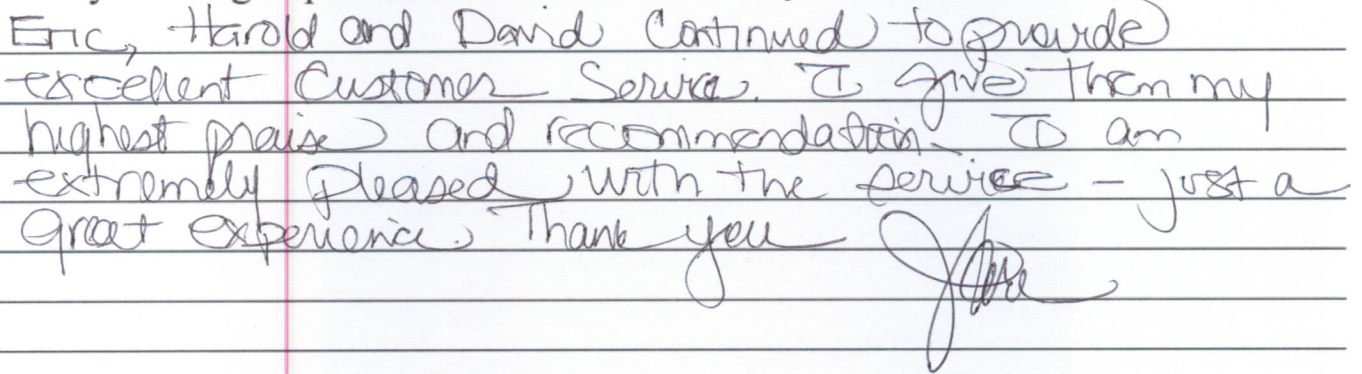 Eric, Harold and David Continued to provide
excellent Customer Service. I give them my
highest praise and recommendation. I am
extremely pleased with the service - just a
great experience. Thank you